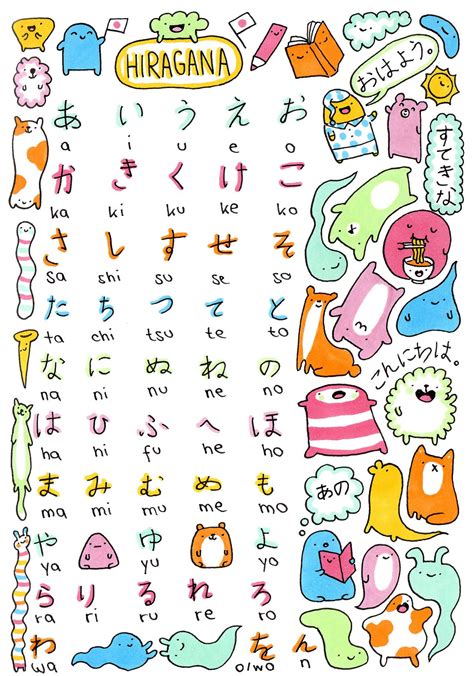 HIRAGANA
おはよう。
あ い う え お
a i u e o
すてきな
か き く け こ
ka ki ku ke ko
さ し す せ そ
sa shi su se so
た ち つ て と
ta chi tsu te to
こんにちは。
な に ぬ ね の
na ni nu ne no
は ひ ふ へ ほ
ha hi fu he ho
あの
ま み む め も
ma mi mu me mo
や ゆ よ
ya yu yo
ら り る れ ろ
ra ri ru re ro
わ を ん
wa o/wo n